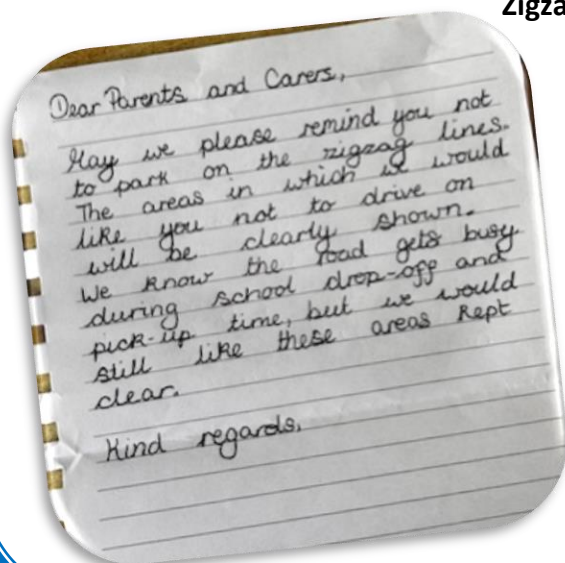 Zigza
Dear Parents and Carers,
May we please remind you not
to park on the zigzag lines.
The areas in which we would
like you not to drive on
will be clearly shown.
We know the road gets busy
during school drop-off and
pick-up time, but we would
still like these areas kept
clear.
Kind regards,